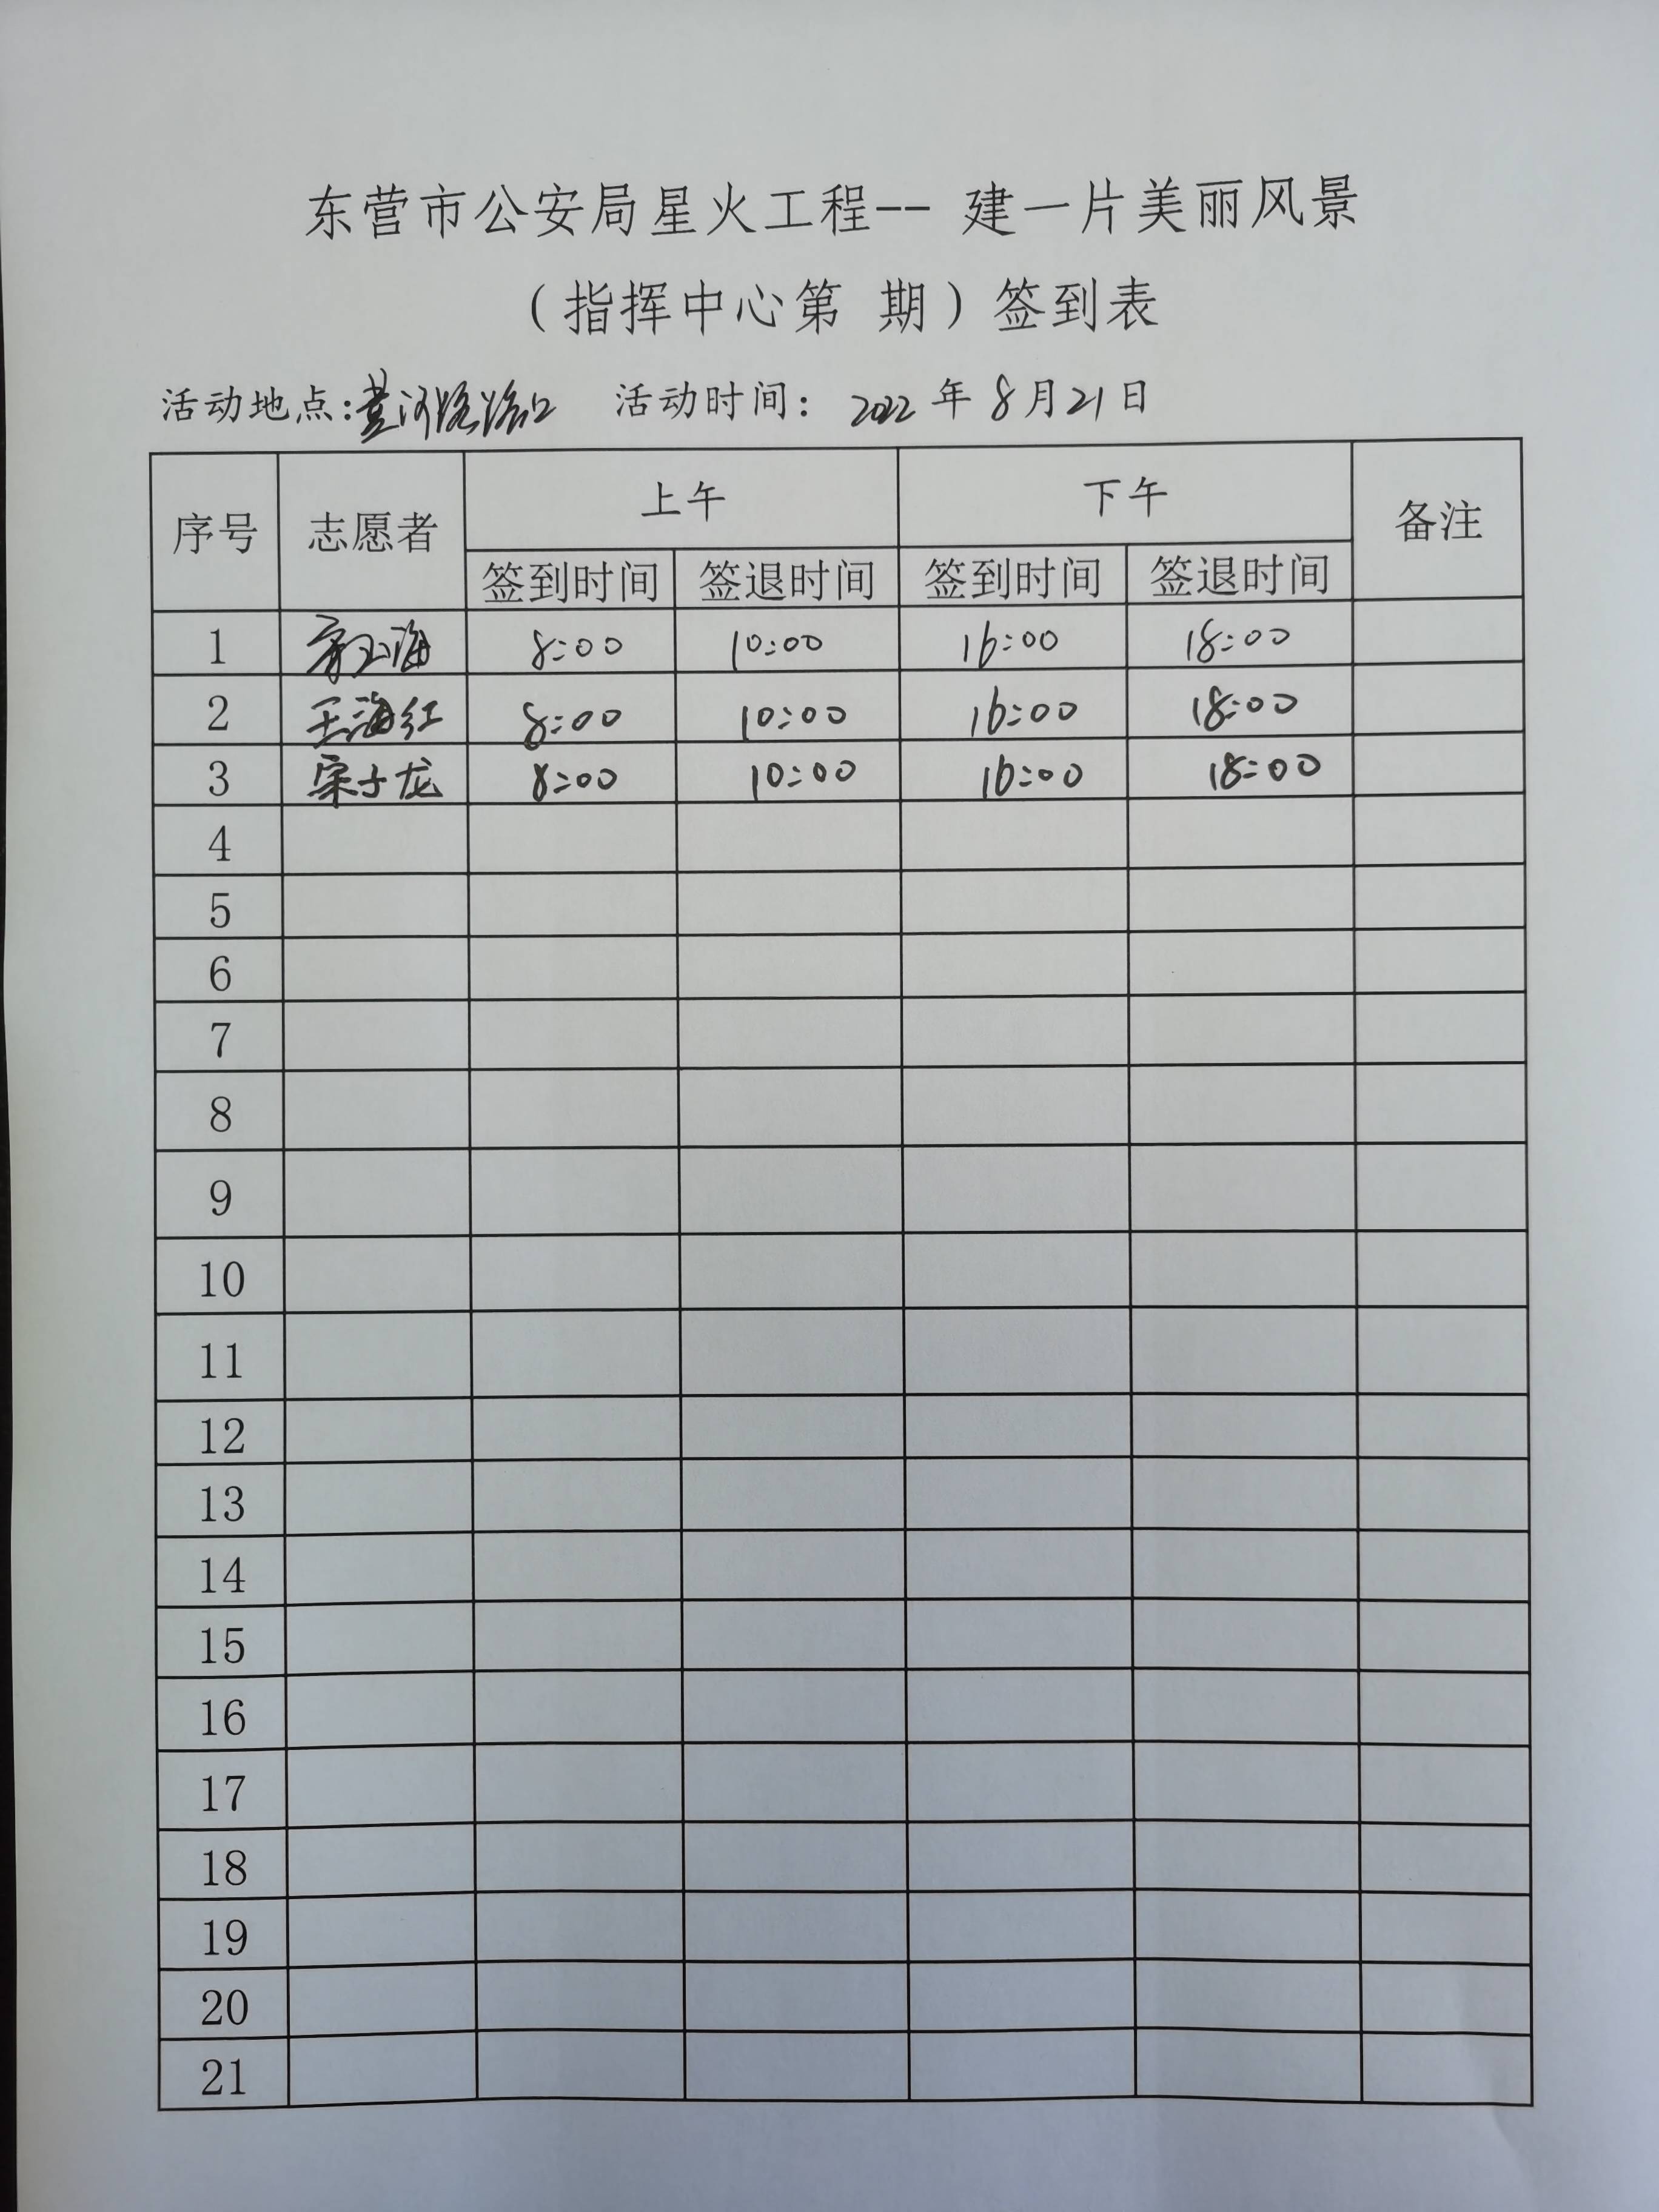 东营市公安局星火工程-- 建一片美丽风景
（指挥中心第 期）签到表
活动地点:黄河路路口 活动时间: 2022 年 8 月 21 日
序号 志愿者 上午 下午 备注
签到时间 签退时间 签到时间 签退时间
1 海 8:00 10:00 16:00 18:00
2 王海红 8:00 10:00 16:00 18:00
3 宋子龙 8:00 10:00 16:00 18:00
4
5
6
7
8
9
10
11
12
13
14
15
16
17
18
19
20
21